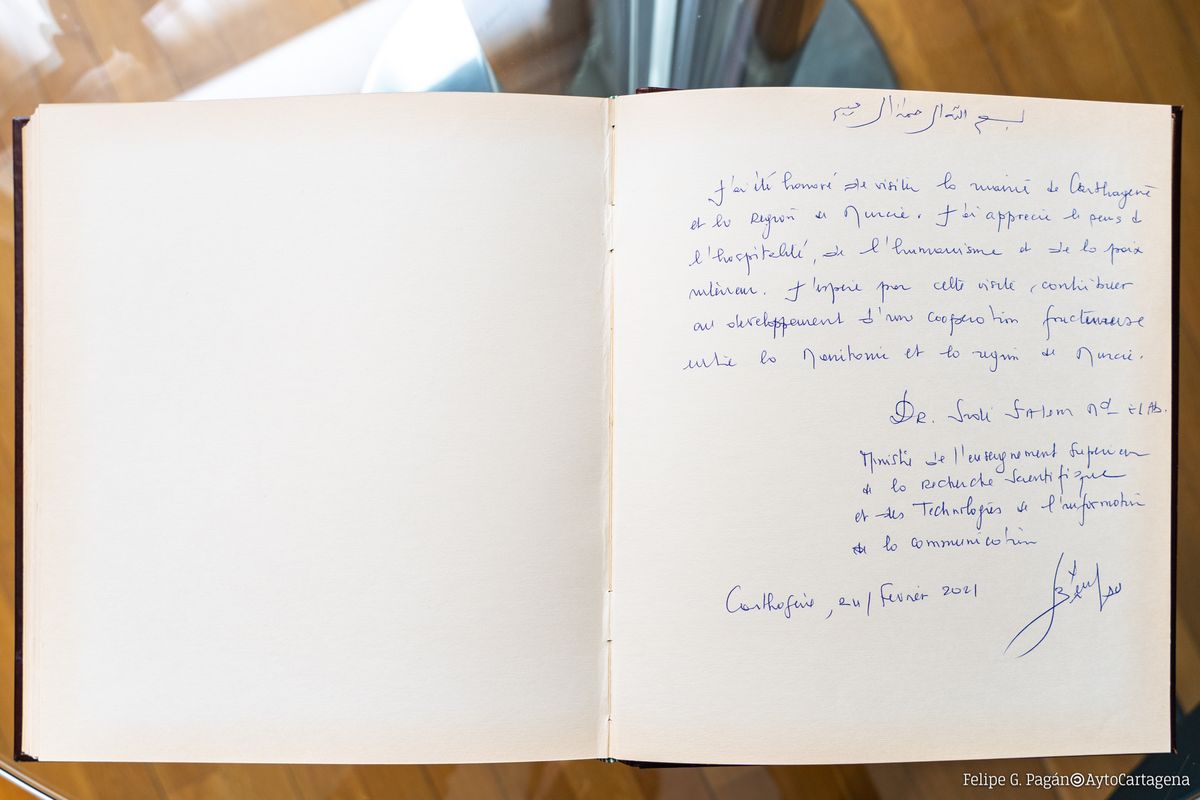 بسم الله الرحمن الرحيم
J'ai été honoré de visiter la mairie de Carthagène
et la Region de Murcie. J'ai apprecié le sens de
l'hospitalité, de l'humanisme et de la paix
intérieur. J'espère par cette visite, contribuer
au developpement d'une cooperation fructueuse
entre la Mauritanie et la region de Murcie.
DR. Sidi Salem Md El Ab.
Ministre de l'enseignement Superieur
de la Recherche Scientifique
et des Technologies de l'information
de la communication
Carthagène, 24/Février 2021
Felipe G. Pagán©AytoCartagena